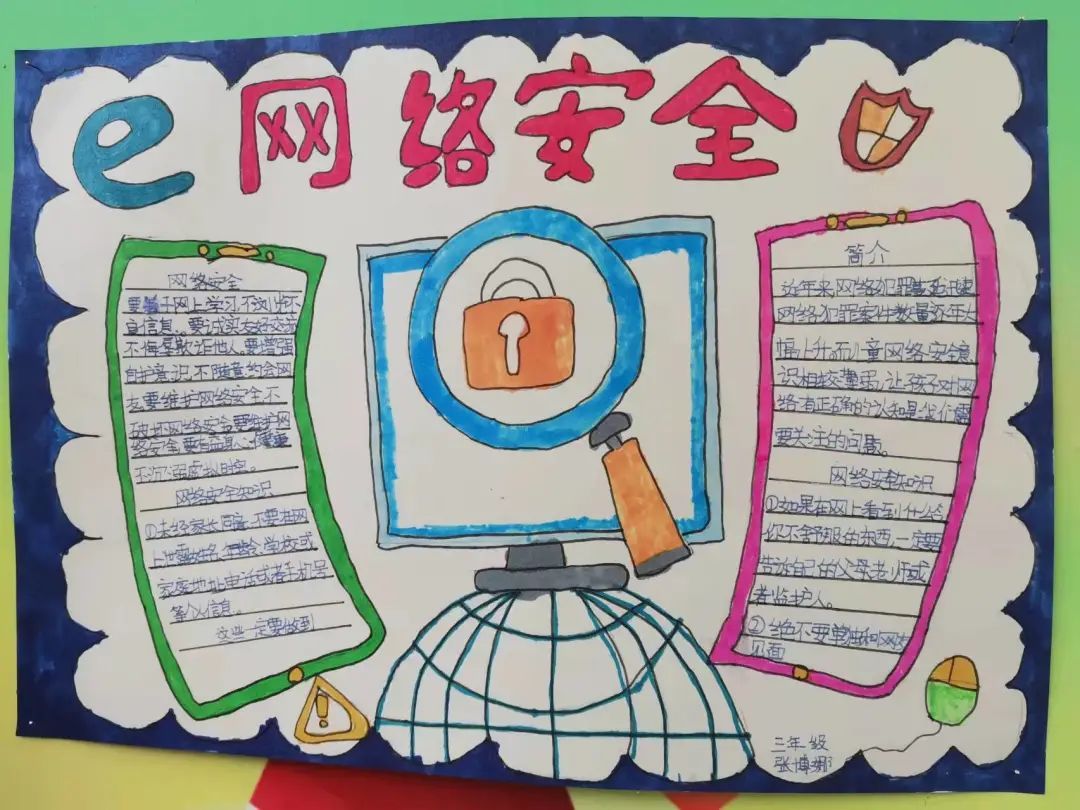 e 网络安全
网络安全
要善于网上学习,不浏览不
良信息。要诚实友好交流
不侮辱欺诈他人,要增强
自护意识,不随意约会网
友要维护网络安全不
破坏网络安全要维护网
络安全要有益身心健康
不沉溺虚拟时空。
网络安全知识
①未经家长同意,不要在网
上泄露姓名、年龄、学校或
家庭地址电话或者手机号
等个人信息。
这些一定要做到
简介
近年来,网络犯罪蔓延迅速
网络犯罪案件数量逐年大
幅上升。而儿童网络安全意
识相较薄弱,让孩子对网
络有正确的认知是我们需
要关注的问题。
网络安全知识
①如果在网上看到什么
你不舒服的东西,一定要
告诉自己的父母老师或
者监护人。
②绝不要单独和网友
见面
三年级
张博娜